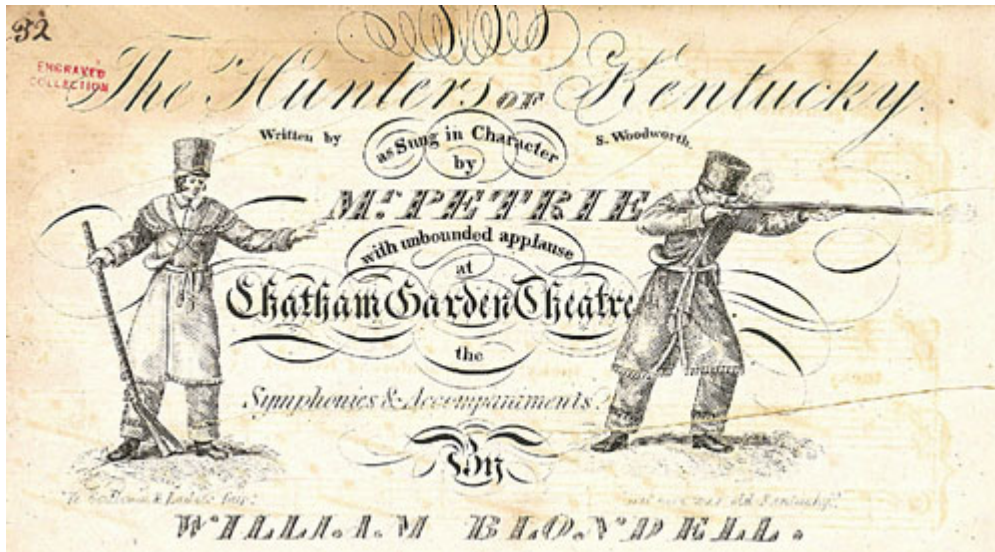 32
ENGRAVED
COLLECTION
The Hunters OF Kentucky.
Written by
as Sung in Character
S. Woodworth.
by
Mr. PETRIE
with unbounded applause
at
Chatham Garden Theatre
the
Symphonies & Accompaniments
By
Ladies fair
old Kentucky
WILLIAM BLONDELL.